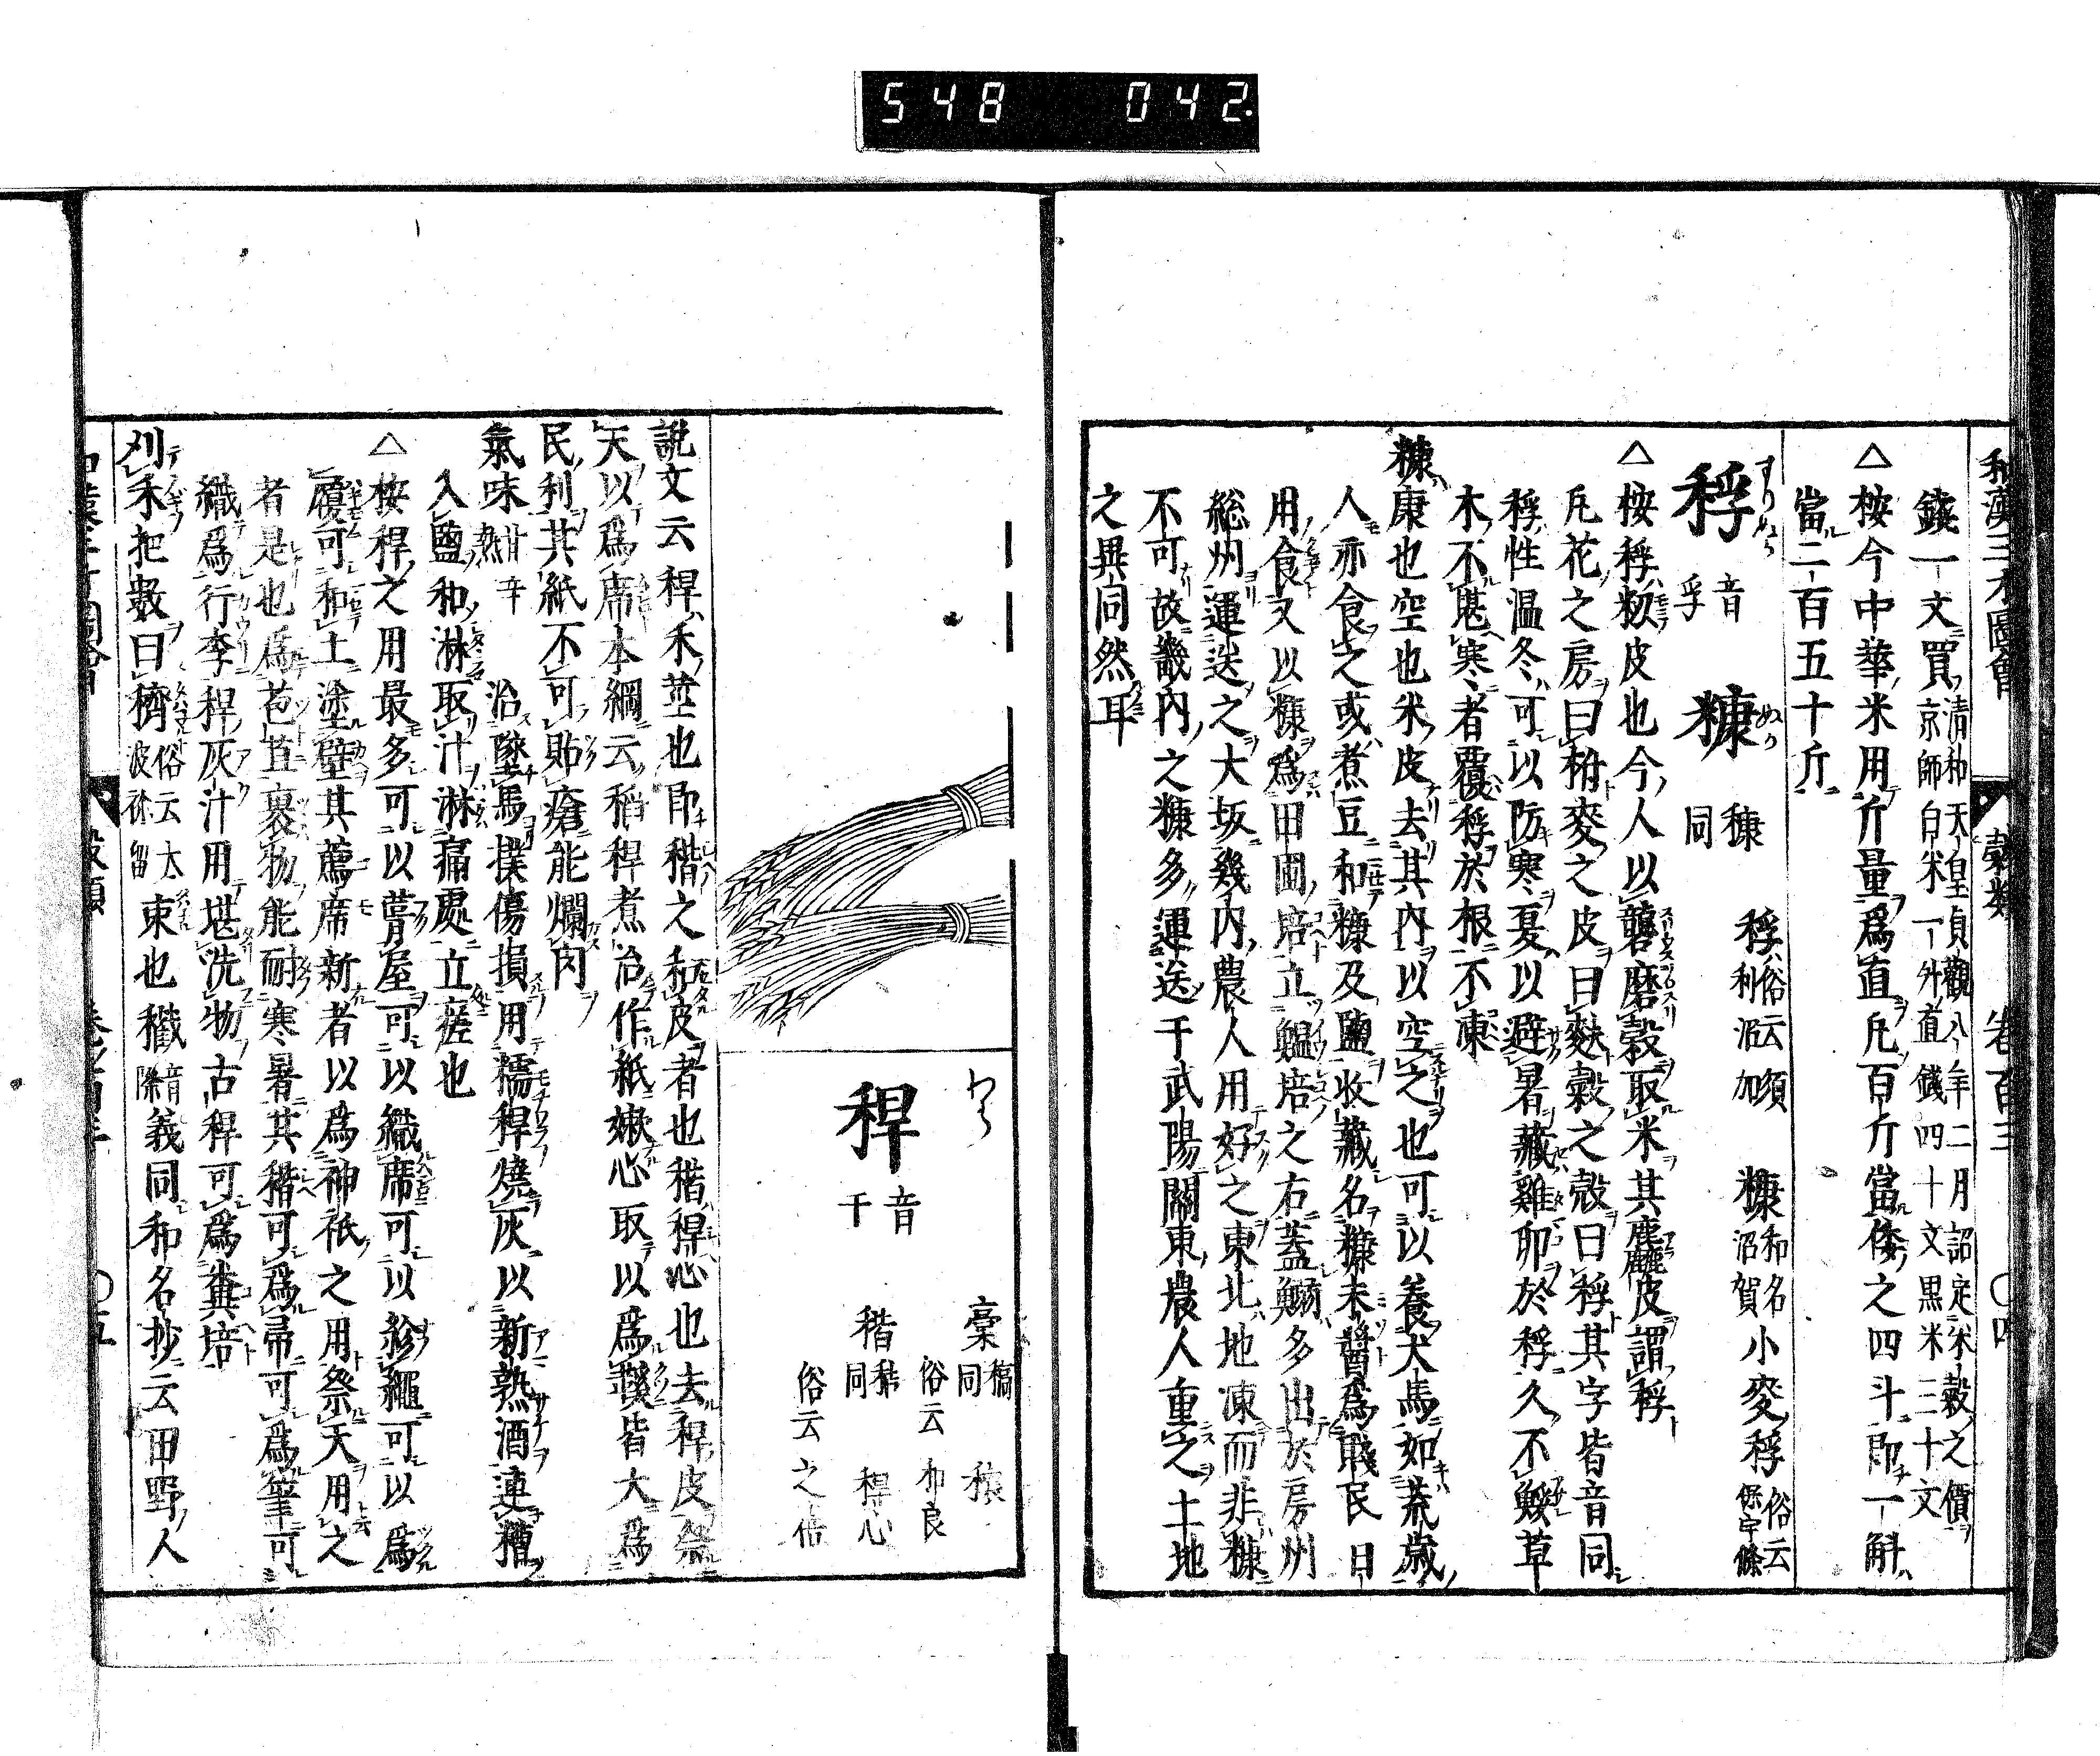 548 042.
和漢三才圖會 穀類 卷百三 ○四
錢一文買 清和天皇貞觀八年二月詔定米穀之價
京師白米一升直錢四十文黒米三十文
△按今中華米用斤量爲直凡百斤當倭之四斗即一斛
當二百五十斤
すりぬか
稃 音孚
ぬか
糠 穅同
稃 俗云須利沼加 糠 和名沼賀 小麥稃 俗云
△按稃籾皮也今人以礱磨穀取米其麁皮謂稃
凡花之房曰柎麥之皮曰麩穀之殼曰稃其字皆音同
稃性温冬可以防寒夏以避暑藏雞卵於稃久不鯘草
木不堪寒者覆稃於根不凍
糠康也空也米皮去其内以空之也可以養犬馬如荒歳
人亦食之或煮豆和糠及鹽收藏名糠未醬爲賤民日
用食又以糠爲田圃培立鰮培之右蓋鰯多出於房州
総州運送之大坂幾内農人用好之東北地凍而非糠
不可故畿内之糠多運送于武陽關東農人重之土地
之異同然耳
わら
稈 音干
稾 稿同 穰
俗云和良
稭 同 稈心
俗云之倍
說文云稈禾莖也即稭之和皮者也稭稈心也去稈皮祭
天以爲席本綱云稻稈煮治作紙嫩心取以爲鞵皆大爲
民利其紙不可貼瘡能爛肉
氣味 甘辛熱 治墜馬撲傷損用糯稈燒灰以新熟酒連糟
入鹽和淋取汁淋痛處立瘥也
△按稈之用最多可以葺屋可以織席可以紾繩可以爲
履可和土塗壁其薦席新者以爲神祇之用祭天用之
者是也爲苞苴裹物能耐寒暑其稭可爲帚可爲筆可
織爲行李稈灰汁用堪洗物古稈可爲糞培
刈禾把數曰穧 俗云太波祢 束也穖 音 義同和名抄云田野人
穀類 ○五